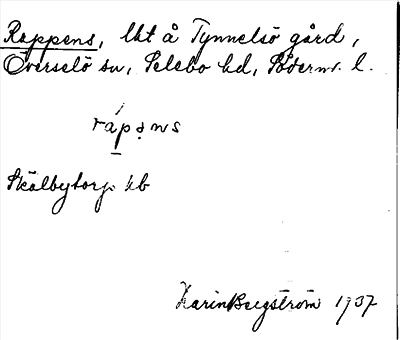 Rappens, lht å Tynnelsö gård,
Överselö sn, Selebo hd, Söderm. l.
rápǝns
Skälbytorp hb
Karin Bergström 1937